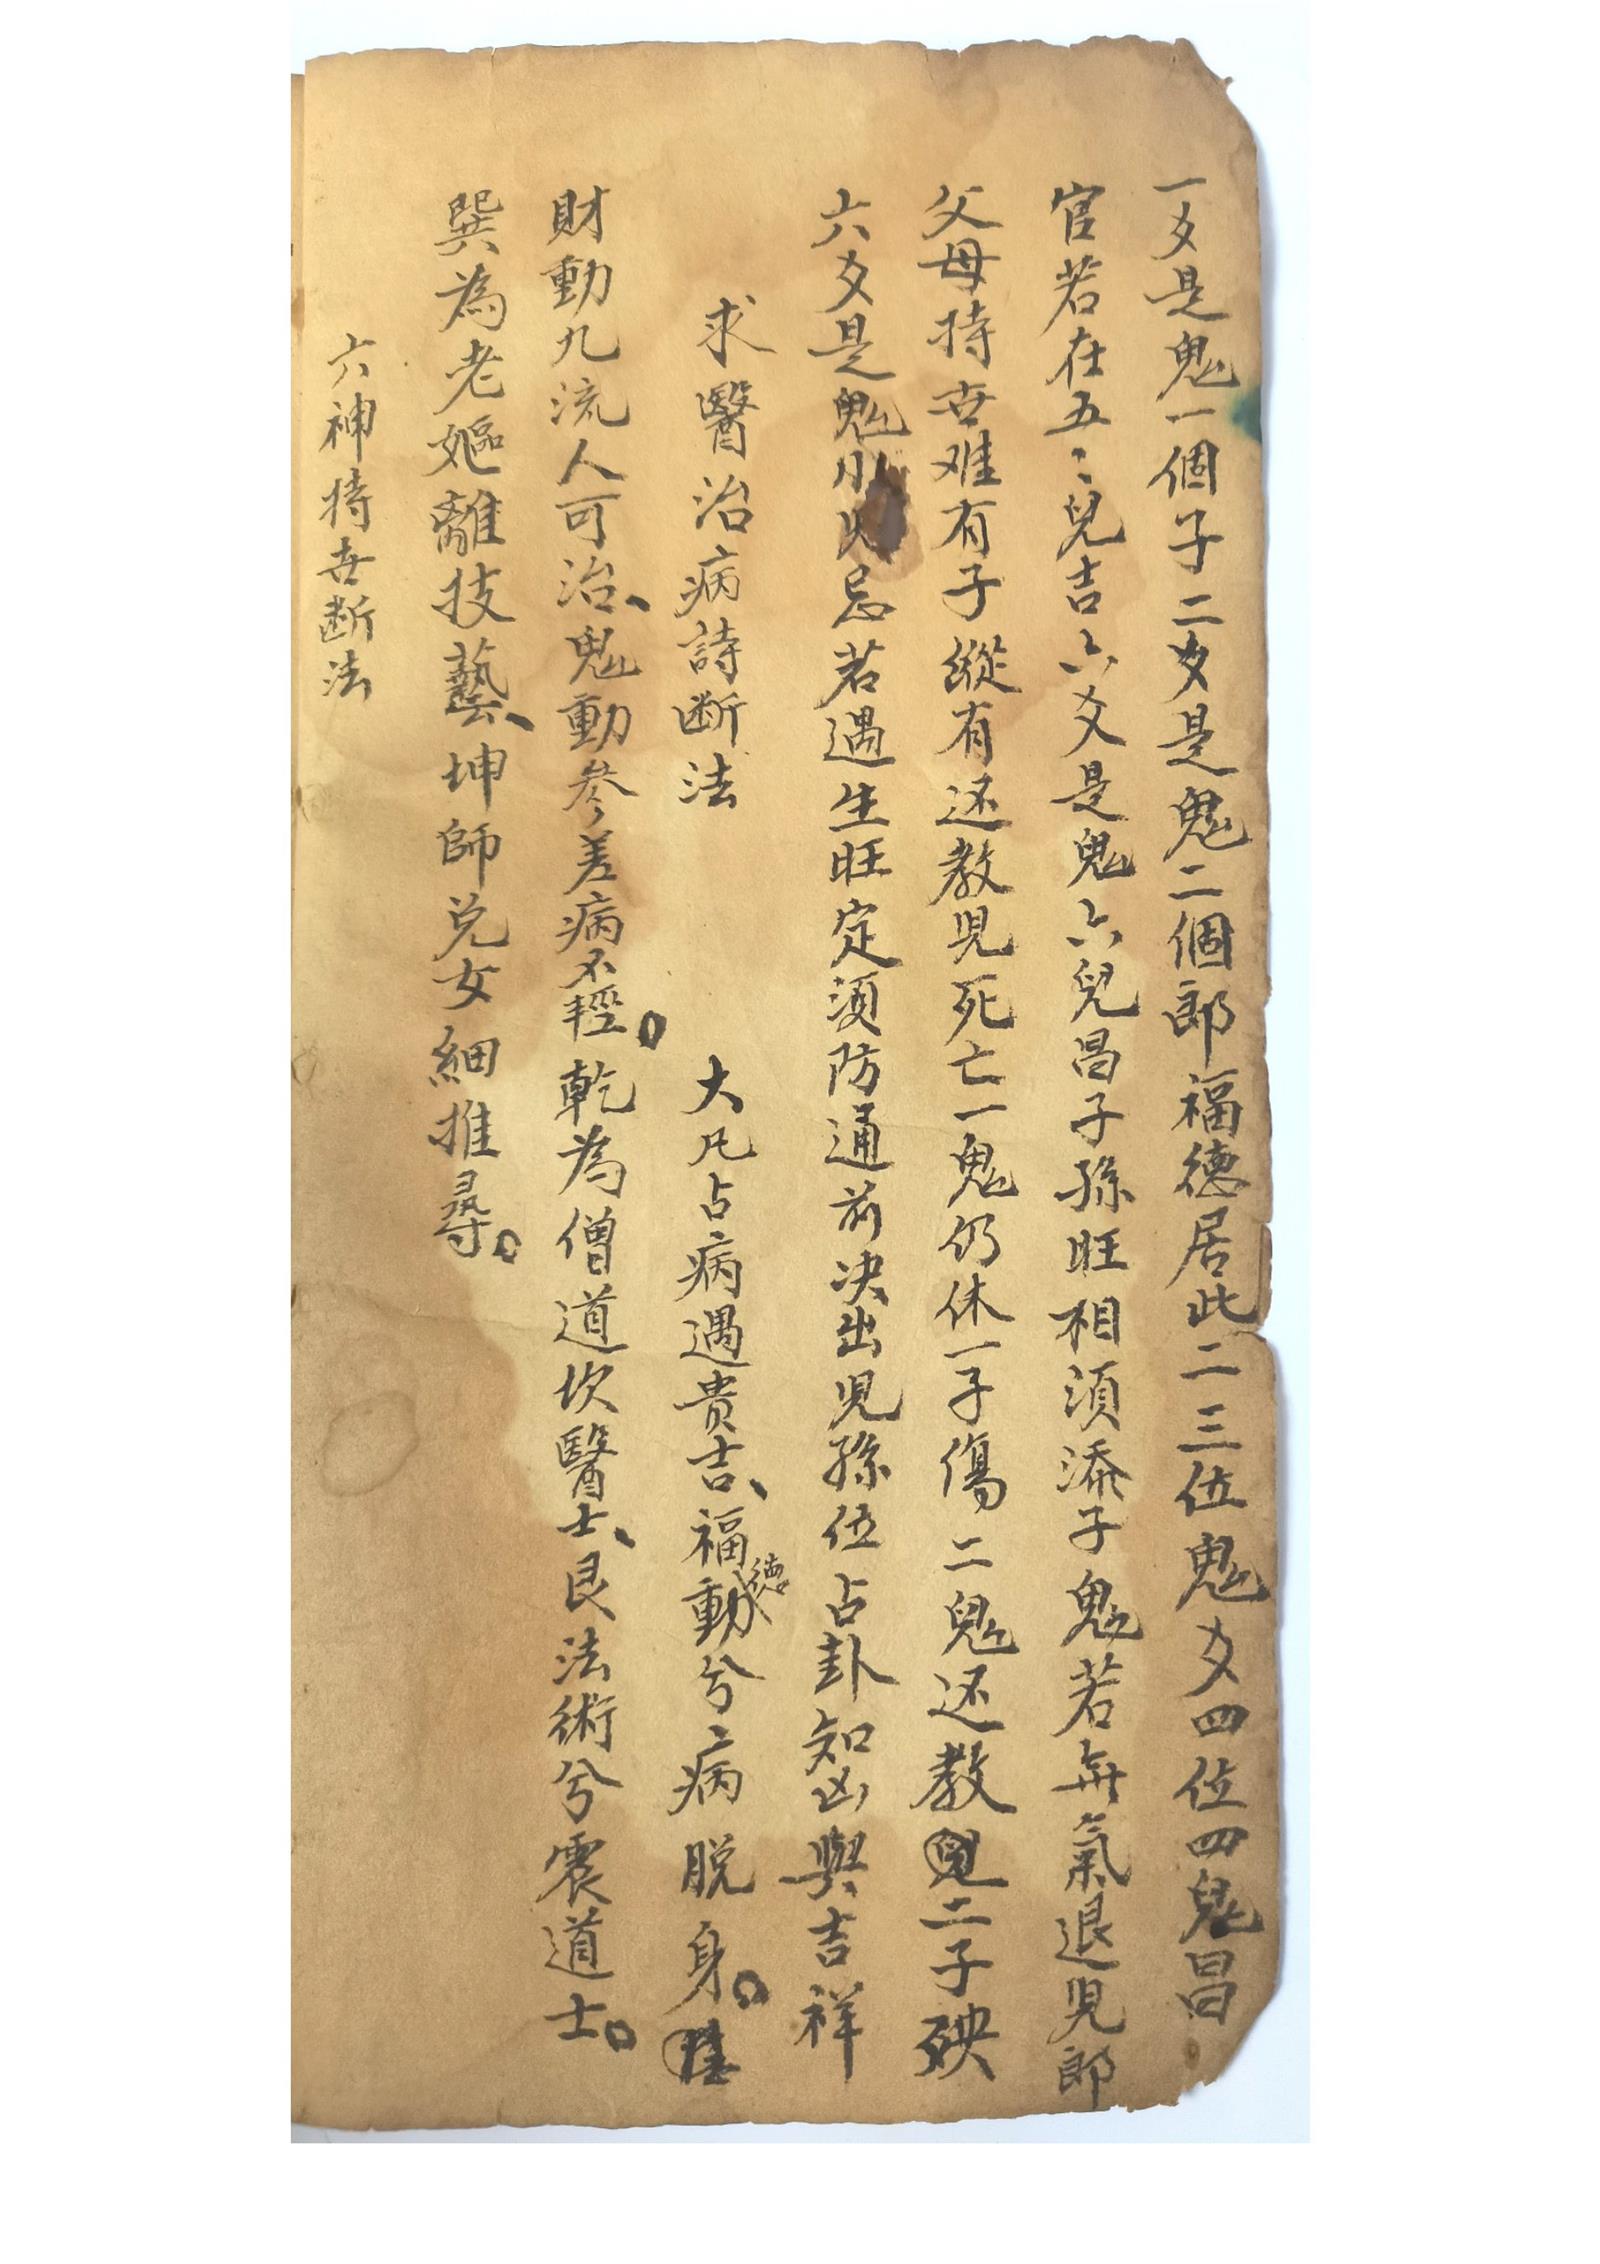 一爻是鬼一個子二爻是鬼二個郎福德居此二三位鬼爻四位四鬼昌
官若在五〻兒吉六爻是鬼六兒昌子孫旺相須添子鬼若無氣退児郎
父母持世难有子縱有还教児死亡一鬼仍休一子傷二鬼还教二子殃
六爻是鬼忌若遇生旺定須防通前决出児孫位占卦知凶與吉祥
求醫治病詩断法 大凡占病遇貴吉、福德動兮病脱身。
財動九流人可治、鬼動參差病不輕。乾為僧道坎醫士、艮法術兮震道士。
巽為老嫗離技藝、坤師兑女細推尋。
六神持世断法